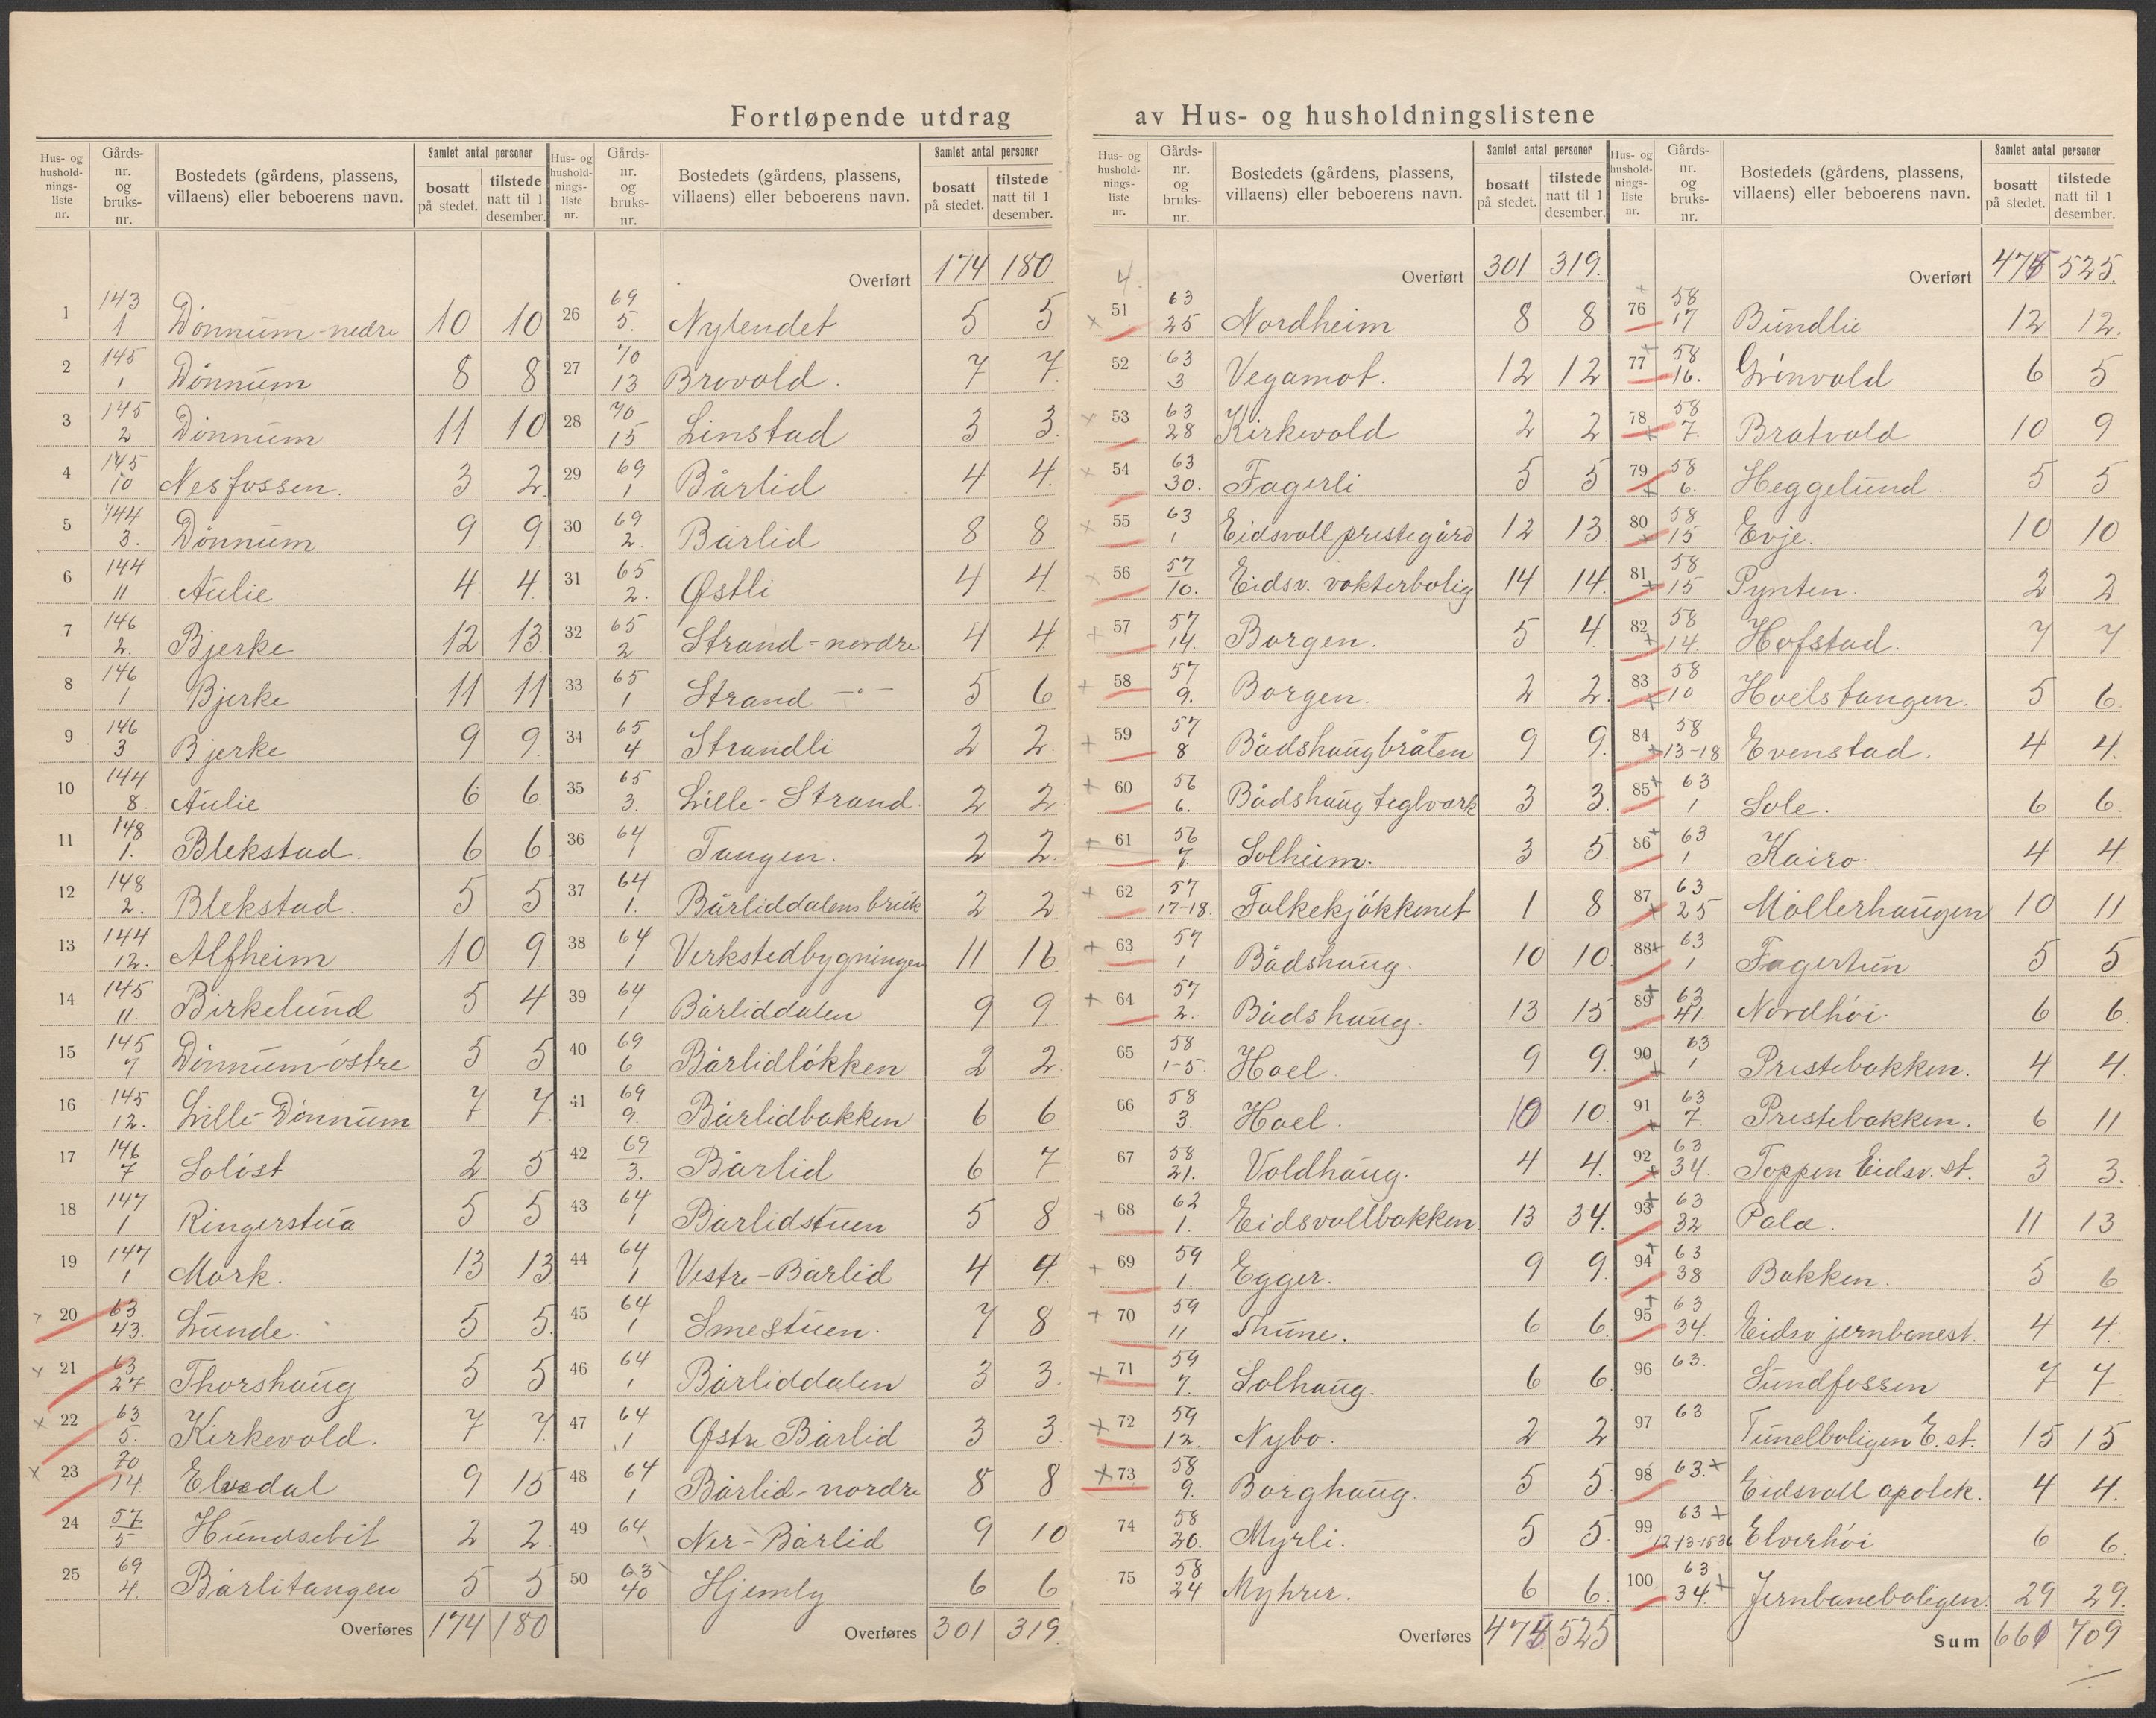 Fortløpende utdrag av Hus- og husholdningslistene
Hus- og husholdningsliste nr. | Gårdsnr. og bruksnr. | Bostedets (gårdens, plassens, villaens) eller beboerens navn. | Samlet antal personer: bosatt på stedet. | tilstede natt til 1 desember.
1 143/1 Dönnum-nedre 10 10
2 145/1 Dönnum 8 8
3 145/2 Dönnum 11 10
4 145/10 Nesfossen. 3 2
5 144/3. Dönnum 9 9
6 144/11 Aulie 4 4
7 146/2. Bjerke 12 13
8 146/1 Bjerke 11 11
9 146/3 Bjerke 9 9
10 144/8. Aulie 6 6
11 148/1. Blekstad. 6 6
12 148/2. Blekstad 5 5
13 144/12. Alfheim 10 9
14 145/11. Birkelund 5 4
15 145/7 Dönnum-östre 5 5
16 145/12. Lille-Dönnum 7 7
17 146/7 Soløst 2 5
18 147/1 Ringerstua 5 5
19 147/1 Mork. 13 13
20 63/43. Lunde. 5 5
21 63/27. Thorshaug 5 5
22 63/5. Kirkevold. 7 7
23 70/14. Elvedal 9 15
24 57/5 Hundsebit 2 2
25 69/4. Bårlitangen 5 5
Overføres 174 180
Overført 174 180
26 69/5. Nylendet 5 5
27 70/13 Brovold. 7 7
28 70/15 Linstad 3 3
29 69/1 Bårlid 4 4
30 69/2. Bårlid 8 8
31 65/2. Østli 4 4
32 65/2 Strand-nordre 4 4
33 65/1 Strand -"- 5 6
34 65/4 Strandli 2 2
35 65/3. Lille-Strand 2 2
36 64/1 Tangen. 2 2
37 64/1. Bårliddalens bruk 2 2
38 64/1 Verkstedbygningen 11 16
39 64/1 Bårliddalen 9 9
40 69/6 Bårlidlökken 2 2
41 69/9. Bårlidbakken 6 6
42 69/3. Bårlid 6 7
43 64/1 Bårlidstuen 5 8
44 64/1 Vestre-Bårlid 4 4
45 64/1 Smestuen. 7 8
46 64/1 Bårliddalen 3 3
47 64/1 Østre Bårlid 3 3
48 64/1 Bårlid-nordre 8 8
49 64/1 Ner-Bårlid 9 10
50 63/40 Hjemly 6 6
Overføres 301 319
4.
Overført 301 319.
51 63/25 Nordheim 8 8
52 63/3 Vegamot. 12 12
53 63/28 Kirkevold 2 2
54 63/30. Fagerli 5 5
55 63/1 Eidsvoll prestegård 12 13
56 57/10. Eidsv. vokterbolig 14 14
57 57/14. Borgen. 5 4
58 57/9. Borgen. 2 2
59 57/8 Bådshaugbråten 9 9
60 56/6. Bådshaug teglverk 3 3
61 56/7. Solheim. 3 5
62 57/17-18. Folkekjökkenet 1 8
63 57/1 Bådshaug. 10 10
64 57/2. Bådshaug. 13 15
65 58/1-5. Hoel 9 9
66 58/3. Hoel. 10 10
67 58/21. Voldhaug. 4 4
68 62/1. Eidsvollbakken 13 34
69 59/1. Egger. 9 9
70 59/11 Thune. 6 6
71 59/7. Solhaug. 6 6
72 59/12. Nybo. 2 2
73 58/9. Borghaug. 5 5
74 58/20. Myrli. 5 5
75 58/24 Myhrer. 6 6
Overføres 475 525
Overført 475 525.
76 58/17 Bundlie 12 12.
77 58/16. Grinvold 6 5
78 58/7. Bratvold 10 9
79 58/6. Heggelund. 5 5
80 58/15 Evje. 10 10
81 58/15 Pynten. 2 2
82 58/14. Hofstad. 7 7
83 58/10 Hoelstangen. 5 6
84 58/13-18 Evenstad. 4 4
85 63/1 Sole. 6 6
86 63/1 Kairo. 4 4
87 63/25 Möllerhaugen 10 11
88 63/1 Fagertun 5 5
89 63/41. Nordhöi. 6 6
90 63/1 Prestebakken. 4 4
91 63/7 Prestebakken. 6 11
92 63/34. Toppen Eidsv. st. 3 3
93 63/32 Palæ. 11 13
94 63/38 Bakken. 5 6
95 63/34. Eidsv jernbanest. 4 4
96 63. Sundfossen 7 7
97 63 Tunelboligen E. st. 15 15
98 63. Eidsvoll apotek. 4 4
99 63/12-13-15-36 Elverhöi 6 6
100 63/34 Jernbaneboligen. 29 29.
Sum 661 709